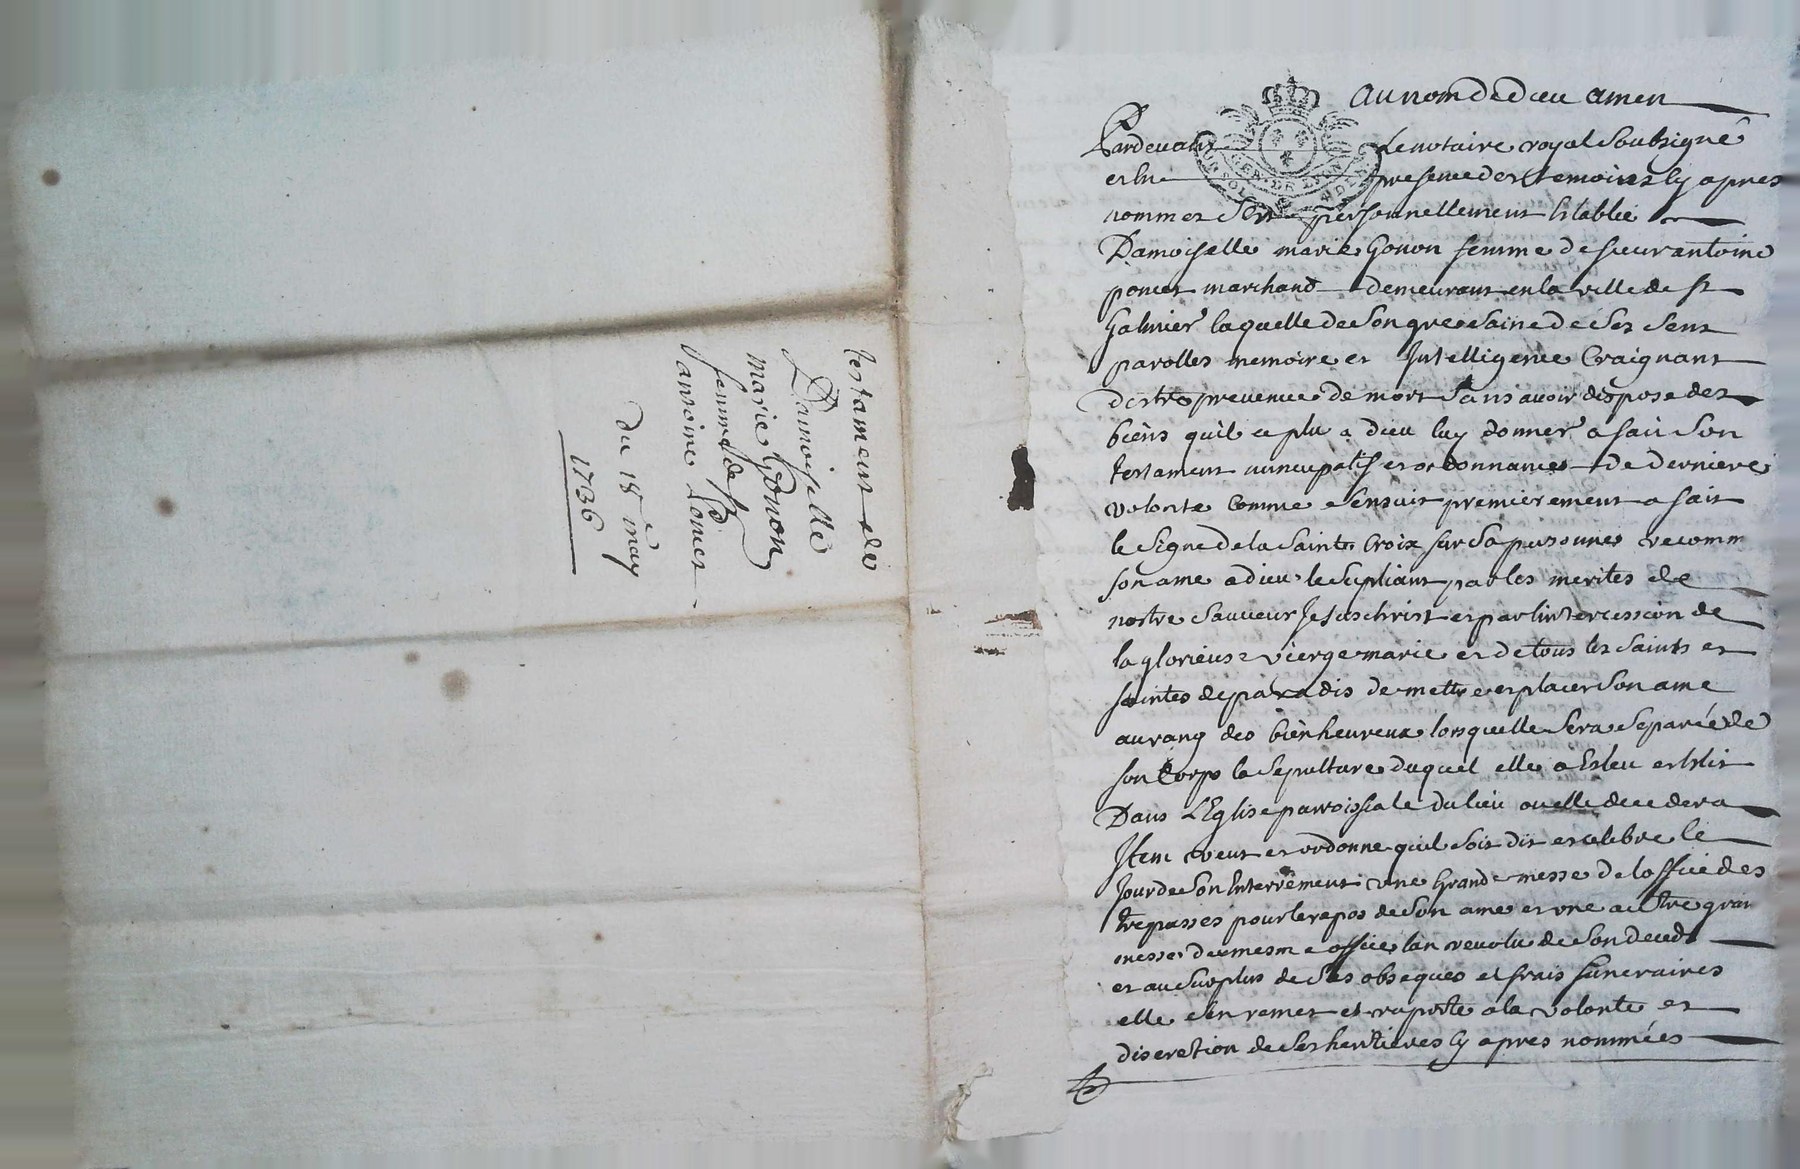 testament de
Damoiselle
marie Gonon
femme de Sr
antoine Poncet
du 18 may
1736
au nom de dieu amen
Pardevant Le notaire royal Soubsigné
et en presence des temoins cy apres
nommes Est personnellement Establie
Damoiselle marie Gonon femme de sieur antoine
poncet marchand demeurant en la ville de st
Galmier laquelle de Son gre Saine de Ses Sens
parolles memoire et Intelligence Craignant
destre prevenue de mort Sans avoir dispose des
biens quil a plu a dieu luy donner a fait Son
testament nuncupatif et ordonnance de derniere
volonte Comme sensuit premierement a fait
le Signe de la Sainte Croix sur Sa personne recomm
son ame a dieu le Supliant par les merites de
nostre Sauveur Jesus christ et par lintercession de
la glorieuse vierge marie et de tous les Saints et
saintes de paradis de mettre et placer Son ame
au rang des bienheureux lorsquelle Sera Separée de
son Corps la Sepulture duquel elle a Esleu et Elit
Dans LEglise parroissiale du lieu ou elle decedera
Item veut et ordonne quil soit dit et celebre le
Jour de Son Enterrement une Grande messe de loffice des
trepasses pour le repos de Son ame et une autre gran
messe du mesme office lan revolu de Son deceds
et au Surplus de Ses obseques et frais funeraires
elle sen remet et raporte a la volonte et
discretion de Ses heritieres cy apres nommées